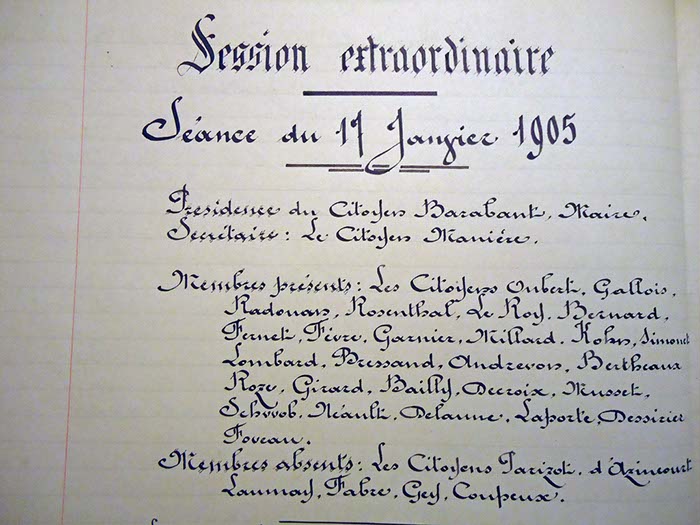 Session extraordinaire
Séance du 17 Janvier 1905
Présidence du Citoyen Barabant, Maire.
Secrétaire : Le Citoyen Manière.
Membres présents : Les Citoyens Oubert, Gallois,
Radouan, Rosenthal, Le Roy, Bernard,
Fernet, Fèvre, Garnier, Millard, Kohn, Simonet
Lombard, Bressand, Andrevon, Bertheaux
Roze, Girard, Bailly, Decroix, Musset,
Schwob, Néault, Delanne, Laporte, Dessirier
Foveau.
Membres absents : Les Citoyens Parizot, d'Azincourt
Launay, Fabre, Gey, Coupeux.